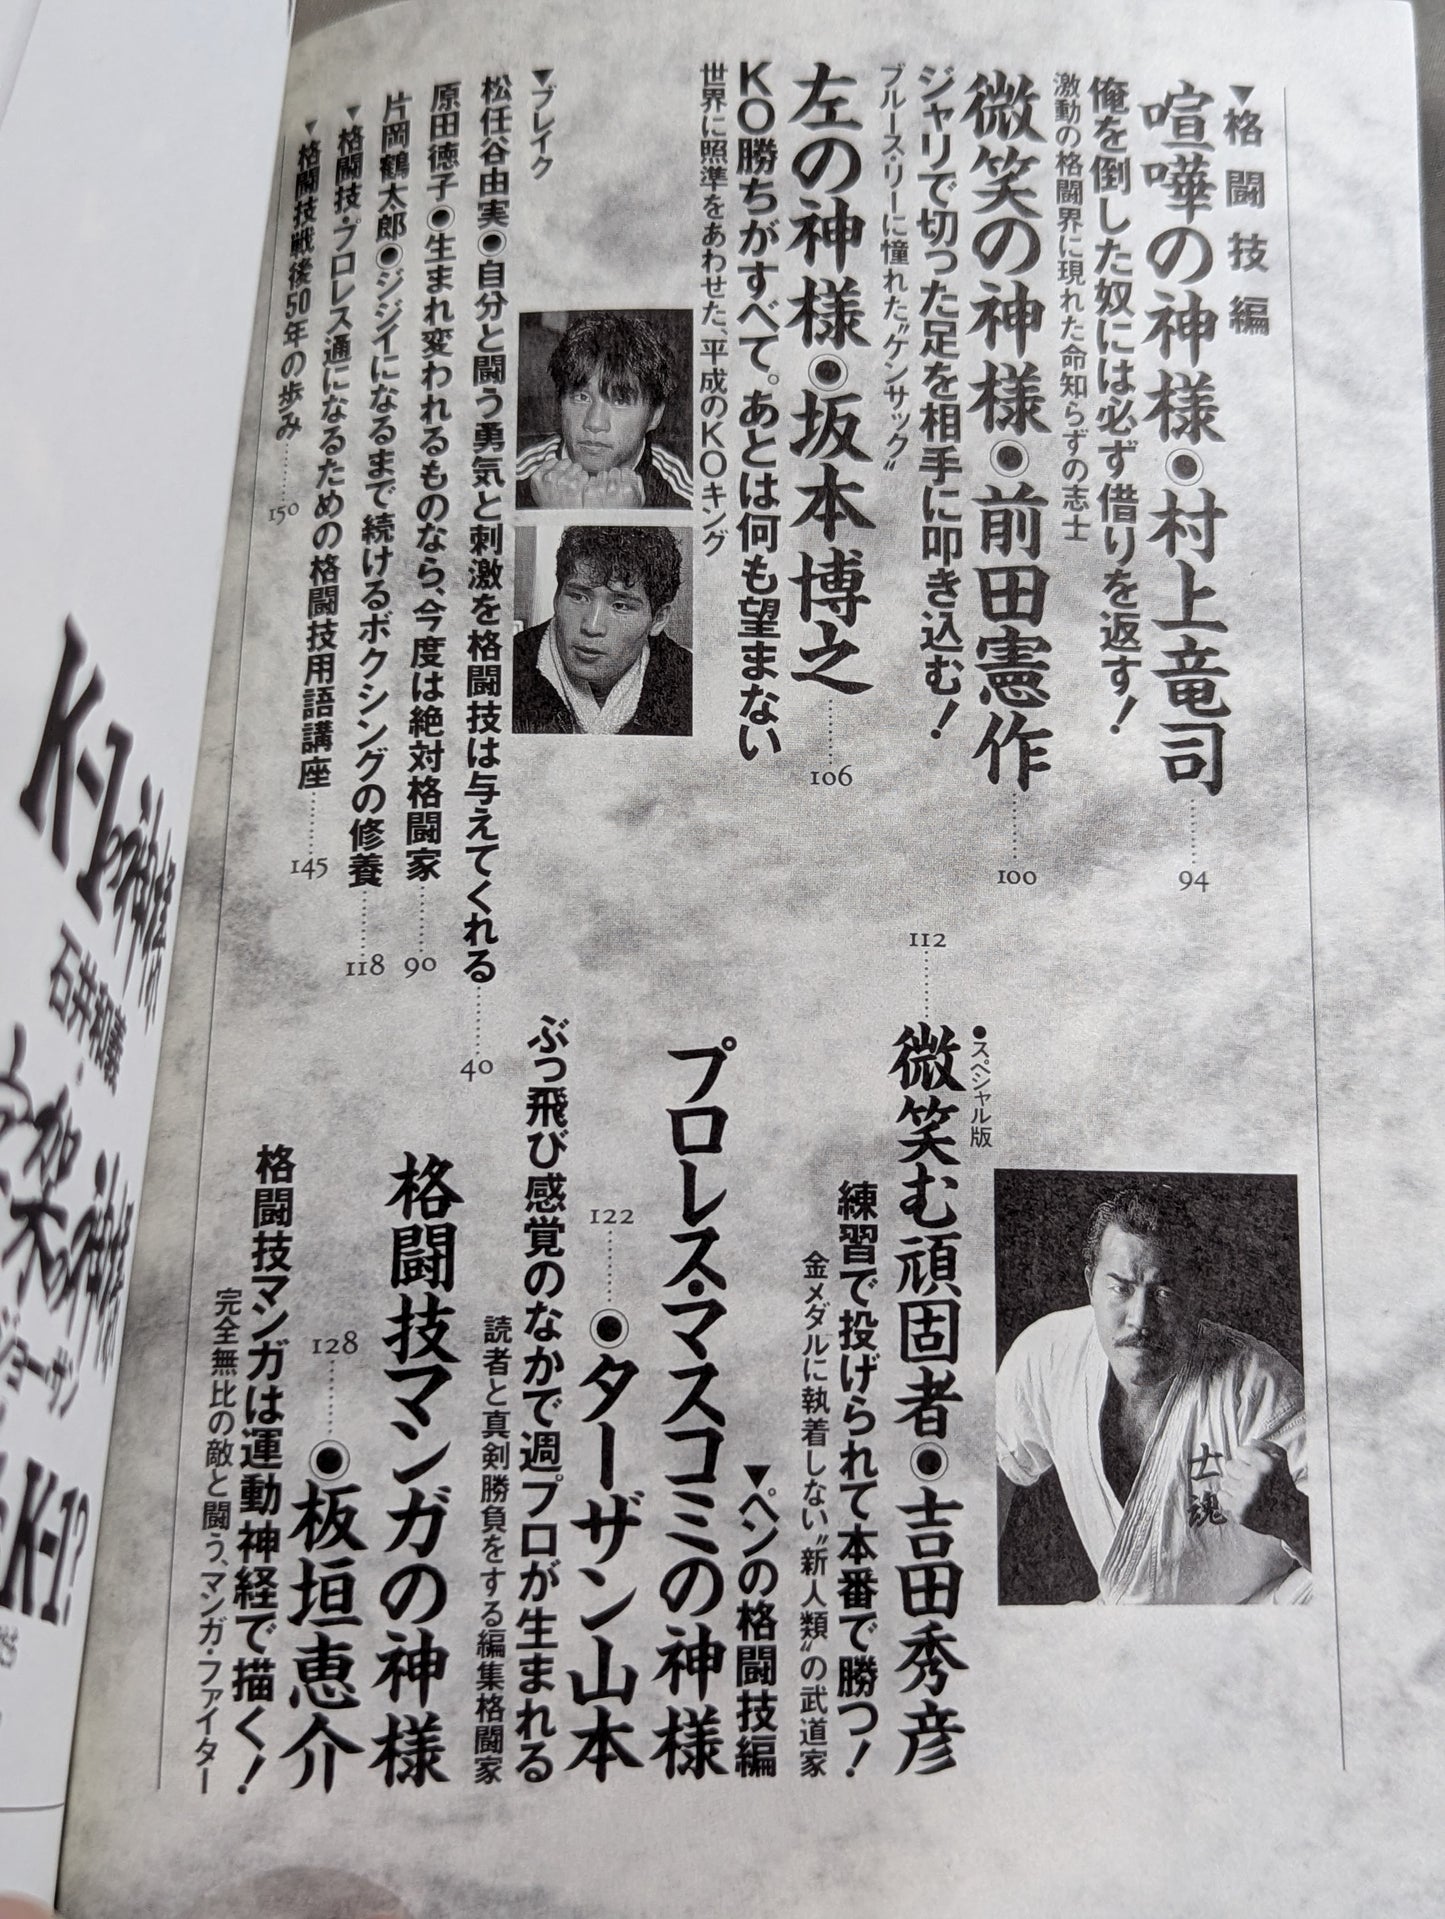 ▼格闘技編
喧嘩の神様●村上竜司……94
俺を倒した奴には必ず借りを返す!
激動の格闘界に現れた命知らずの志士
微笑の神様●前田憲作……100
ジャリで切った足を相手に叩き込む!
ブルース・リーに憧れた"ケンサック"
左の神様●坂本博之……106
KO勝ちがすべて。あとは何も望まない
世界に照準をあわせた、平成のKOキング
▼ブレイク
松任谷由実●自分と闘う勇気と刺激を格闘技は与えてくれる……40
原田徳子●生まれ変われるものなら、今度は絶対格闘家……90
片岡鶴太郎●ジジイになるまで続けるボクシングの修養……118
▼格闘技・プロレス通になるための格闘技用語講座……145
▼格闘技戦後50年の歩み……150
●スペシャル版
112……微笑む頑固者●吉田秀彦
練習で投げられて本番で勝つ!
金メダルに執着しない"新人類"の武道家
士魂
▼ペンの格闘技編
プロレス・マスコミの神様
122……●ターザン山本
ぶっ飛び感覚のなかで週プロが生まれる
読者と真剣勝負をする編集格闘家
格闘技マンガの神様
128……●板垣恵介
格闘技マンガは運動神経で描く!
完全無比の敵と闘う、マンガ・ファイター
K-1の神様
石井和義
K-1?